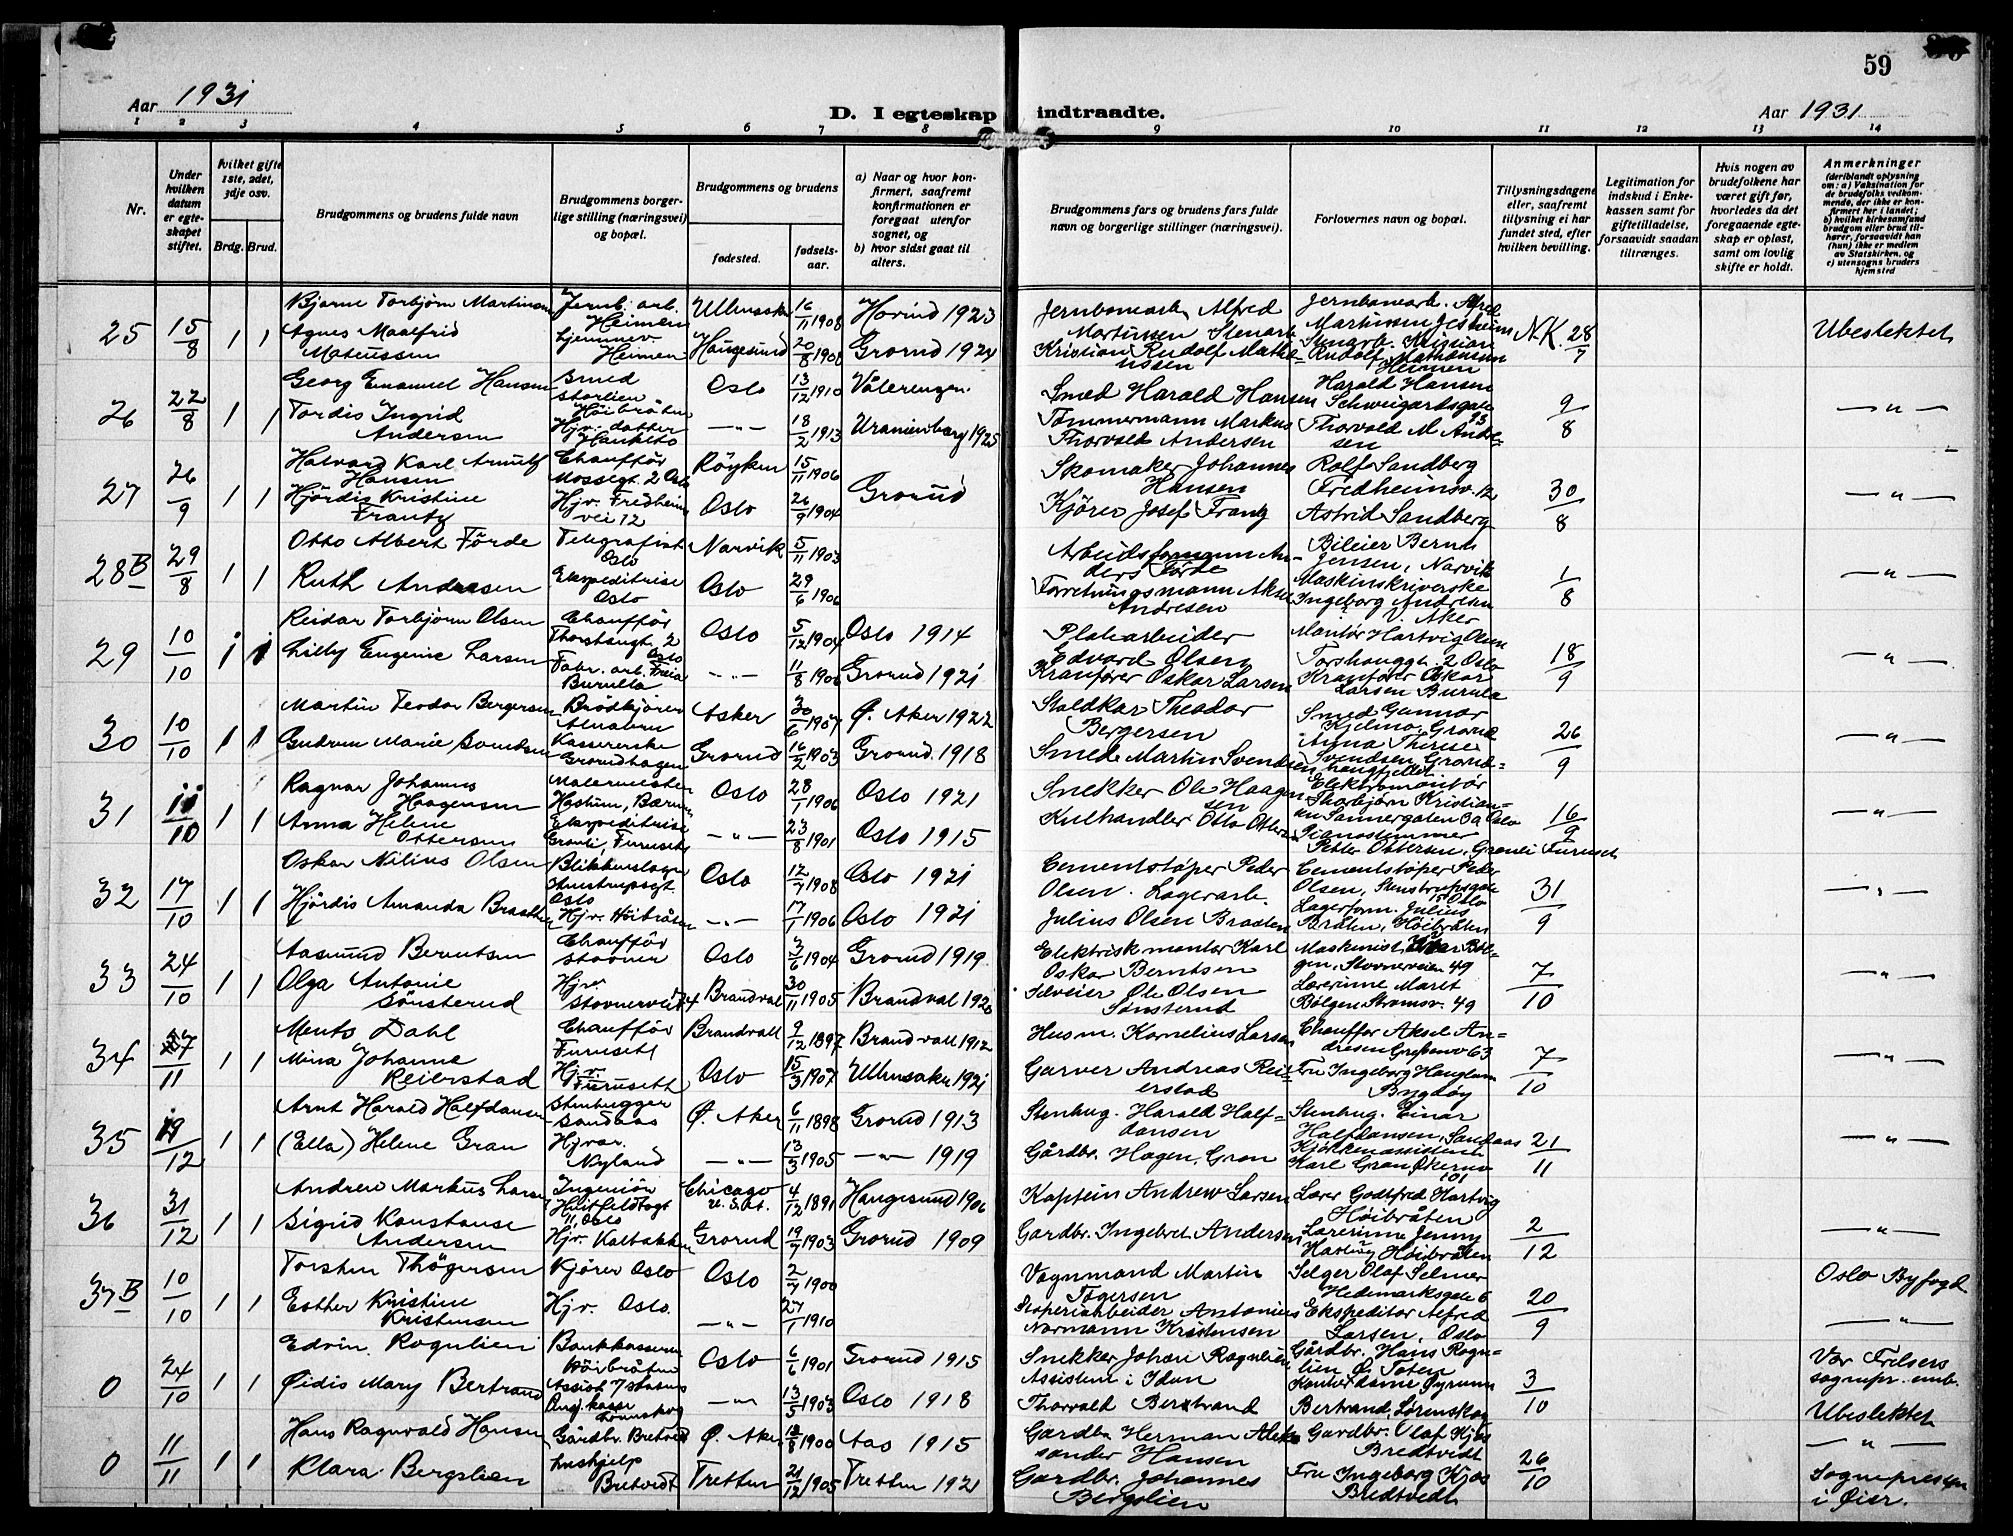 59
Aar 1931
D. I egteskap indtraadte.
Aar 1931
1 2 3 4 5 6 7 8 9 10 11 12 13 14
Nr.
Under hvilken datum er egteskapet stiftet.
Hvilket gifte 1ste, 2det, 3dje osv.
Brdg. Brud.
Brudgommens og brudens fulde navn
Brudgommens borgerlige stilling (næringsvei) og bopæl.
Brudgommens og brudens
fødested.
fødselsaar.
a) Naar og hvor konfirmert, saafremt konfirmationen er foregaat utenfor sognet, og
b) hvor sidst gaat til alters.
Brudgommens fars og brudens fars fulde navn og borgerlige stillinger (næringsvei).
Forlovernes navn og bopæl.
Tillysningsdagene eller, saafremt tillysning ei har fundet sted, efter hvilken bevilling.
Legitimation for indskud i Enkekassen samt for giftetilladelse, forsaavidt saadan tiltrænges.
Hvis nogen av brudefolkene har været gift før, hvorledes da det foregaaende egteskap er opløst, samt om lovlig skifte er holdt.
Anmerkninger
(deriblandt oplysning om: a) Vaksination for de brudefolks vedkommende, der ikke er konfirmert her i landet;
b) hvilket kirkesamfund brudgom eller brud tilhører, forsaavidt han (hun) ikke er medlem av Statskirken, og
c) utensogns bruders hjemsted
25 15/8 1 1 Bjarne Torbjørn Martinsen Jernb. arb. Heimen Ullensaker 16/11 1908 Hovind 1923 Jernbanearb. Alfred Martinsen Jernbanearb. Alfred Martinsen Jesheim N.K. 28/7 Ubeslektet
Agnes Maalfrid Mateussen Heimen Haugesund 20/8 1908 Grorud 1924 Stenarb. Kristian Rudolf Matheussen Stenarb. Kristian Rudolf Matheussen Heimen
26 22/8 1 1 Georg Emanuel Hansen Smed Høibråten Oslo 13/12 1910 Vålerengen Smed Harald Hansen Harald Hansen Schweigaardsgate 93 9/8 — " —
Tordis Ingrid Andersen Hjv. datter Hauketo — " — 18/2 1913 Uranienborg 1925 Tømmermann Markus Thorvald Andersen Thorvald M. Andresen
27 26/9 1 1 Halvard Karl Hansen Chauffør Mossegt. 2 Oslo Røyken 15/11 1906 Grorud Skomaker Johannes Hansen Rolf Sandberg Fredheimsv. 12 30/8 — " —
Hjørdis Kristine Frantz Hjv. Fredheimvei 12 Oslo 26/9 1904 Kjører Josef Frantz Astrid Sandberg
28B 29/8 1 1 Otto Albert Førde Telegrafist Oslo Narvik 5/11 1903 Arbeidsformann Anders Førde Bileier Bernt Jensen, Narvik 1/8 — " —
Ruth Andresen Ekspeditrise Oslo Oslo 29/6 1906 Forretningsmann Aksel Andresen Maskinskriverske Ingeborg Andresen V. Aker
29 10/10 1 1 Reidar Torbjørn Olsen Chauffør Thorshaugt. 2 Oslo Oslo 5/12 1904 Oslo 1914 Platearbeider Edvard Olsen Montør Hartvig Olsen Torshauggt. 2 Oslo 18/9 — " —
Lilly Eugenie Larsen Fabr. arb. Freia — " — 11/8 1906 Grorud 1921 Kranfører Oskar Larsen Kranfører Oskar Larsen
30 10/10 1 1 Martin Teodor Bergersen Brødkjører Alnabru Asker 30/6 1907 Ø. Aker 1922 Staldkar Theodor Bergersen Smed Gunnar 26/9 — " —
Gudrun Marie Svendsen Kassererske Grorudhagen Grorud 16/2 1903 Grorud 1918 Smed Martin Svendsen Anna Therese Svendsen
31 11/10 1 1 Ragnar Johannes Haagensen Malermester Haslum, Bærum Oslo 28/1 1906 Oslo 1921 Snekker Ole Haagensen Elektromontør Thorbjørn Kristiansen Sannergaten Oslo 16/9 — " —
Anna Helene Ottersen Ekspeditrise Furuset — " — 23/8 1901 Oslo 1915 Kulhandler Otto Ottersen Pianostemmer Ottersen, Furuset
32 17/10 1 1 Oskar Nilius Olsen Blikkenslager Stenstrupsgt. Oslo Oslo 12/7 1908 Oslo 1921 Cementstøper Peder Olsen Cementstøper Peder Olsen, Stenstrupsgate 15 Oslo 31/9 — " —
Hjørdis Amanda Braathen Hjv. Høibråten — " — 17/1 1906 Oslo 1921 Lagerarb. Julius Olsen Braaten Lagerform. Julius Bråten, Høibråten
33 24/10 1 1 Aasmund Berntsen Chauffør Stovner Oslo 3/6 1904 Grorud 1919 Elektriskmontør Karl Oskar Berntsen Maskinist Bølgen, Stovnerveien 49 7/10 — " —
Olga Antonie Sønsterud Hjv. Brandval 30/11 1905 Brandval 1920 Selveier Ole Olsen Sønsterud Lærerinne Maret Bølgen 49
34 27/11 1 1 Ments Dahl Chauffør Furuset Brandvall 9/12 1897 Brandvall 1912 Husm. Kornelius Larsen Chauffør Aksel Andresen Grefsenv. 63 7/10 — " —
Mina Johanne Reierstad Hjv. Furusett Oslo 15/3 1907 Ullensaker 1921 Garver Andreas Reierstad Fru Ingeborg Bygdøy
35 19/12 1 1 Arnt Harald Halfdansen Stenhugger Sandaas Ø. Aker 6/11 1898 Grorud 1913 Stenhug. Harald Halfdansen Stenhug. Einar Halfdansen, Sandaas 21/11 — " —
(Ella) Helene Gran Hjvær. Nyland — " — 13/3 1905 — " — 1919 Gårdbr. Hagen, Gran Kjøkkenassistent Karl Gran Økernv. 101
36 31/12 1 1 Andrew Markus Larsen Ingeniør Huitfeldtsgt. 11, Oslo Chicago U.S.A. 4/12 1891 Haugesund 1906 Kaptein Andrew Larsen Lærer Godtfred Hartvig Høibråten 2/12 — " —
Sigrid Konstanse Andersen Hjv. Kalbakken Grorud 19/7 1903 Grorud 1909 Gardbr. Ingebret Andersen Lærerinne Jenny Hartvig Høibråten
37B 10/10 1 1 Torsten Thøgersen Kjører Oslo Oslo 2/7 1900 Vognmand Martin Tøgersen Selger Olaf Selmer Hedemarksgate 6 20/9 Oslo Byfogd
Esther Kristine Kristensen Hjv. Oslo. — " — 27/1 1910 Støperiarbeider Antonius Normann Kristensen Ekspeditør Alfred Larsen, Oslo — " —
0 24/10 1 1 Edvin Rognlien Bankkasserer Høibråten Oslo 6/6 1901 Grorud 1915 Snekker Johan Rognlien Gårdbr. Hans Rognlien Ø. Toten 3/10 Vor Frelsers sognepr. emb.
Øidis Mary Bertrand Assist. — " — 13/5 1903 Oslo 1918 Assistent i Iden Thorvald Bertrand Kontordame Bertrand, Lørenskog Ubeslektet
0 11/11 1 1 Hans Ragnvald Hansen Gårdbr. Bretvedt Ø. Aker 12/8 1900 Aas 1915 Gardbr. Herman Aleksander Hansen Gardbr. Olaf Kjos Bredtvedt 26/10 — " —
Klara Bergslien Hushjelp Bretvedt Tretten 21/12 1905 Tretten 1921 Gardbr. Johannes Bergslien Fru Ingeborg Kjos Bredtvedt Sognepresten i Øier.